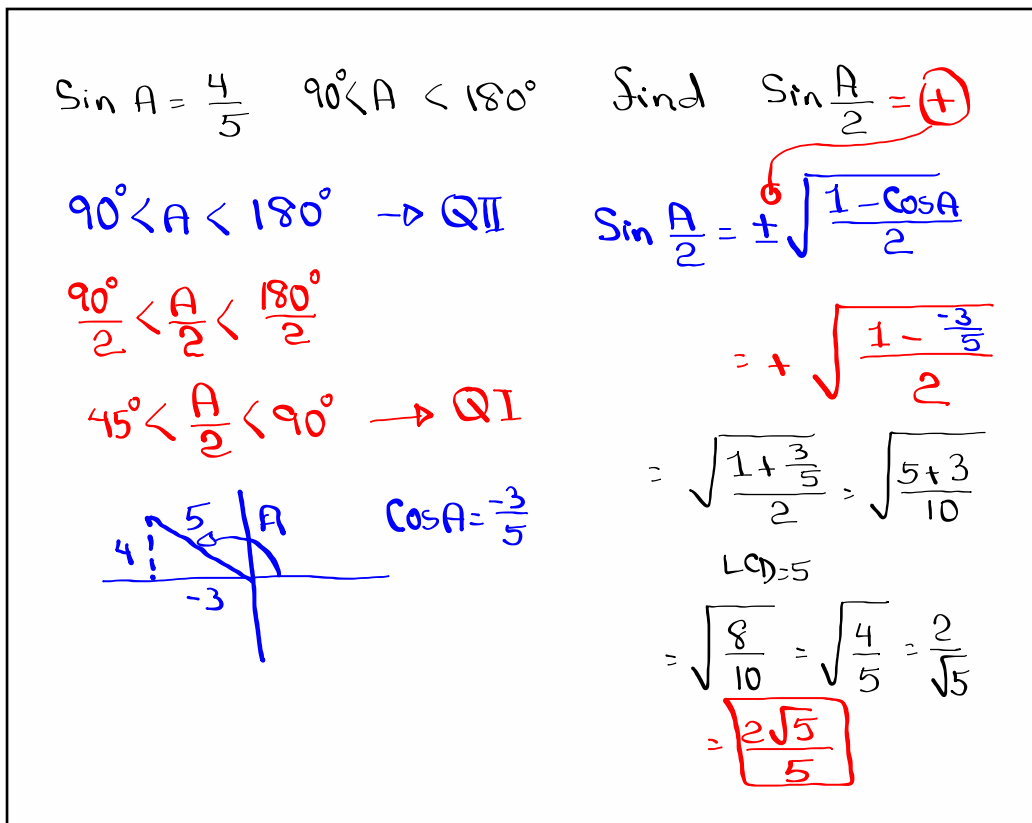 Sin A = 4/5 90° < A < 180° find Sin A/2 = +
90° < A < 180° → QII
90°/2 < A/2 < 180°/2
45° < A/2 < 90° → QI
5 A
4
-3
CosA = -3/5
Sin A/2 = ± √((1 - CosA)/2)
= + √((1 - -3/5)/2)
= √((1 + 3/5)/2) = √((5+3)/10)
LCD=5
= √(8/10) = √(4/5) = 2/√5
= 2√5/5